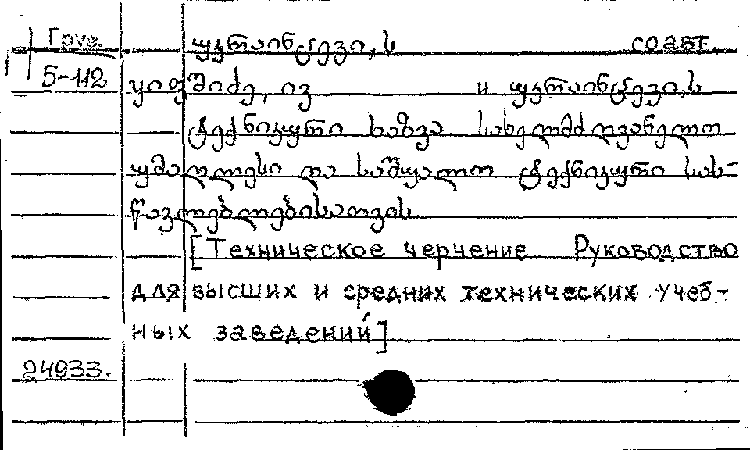 Груз. უკრაინცევი, ს соавт.
5-112 ყიფშიძე, ივ и უკრაინცევი, ს
ტექნიკური ხაზვა სახელმძღვანელო
უმაღლესი და საშუალო ტექნიკური სას-
წავლებლებისათვის
[Техническое черчение Руководство
для высших и средних технических учеб-
ных заведений]
24933.